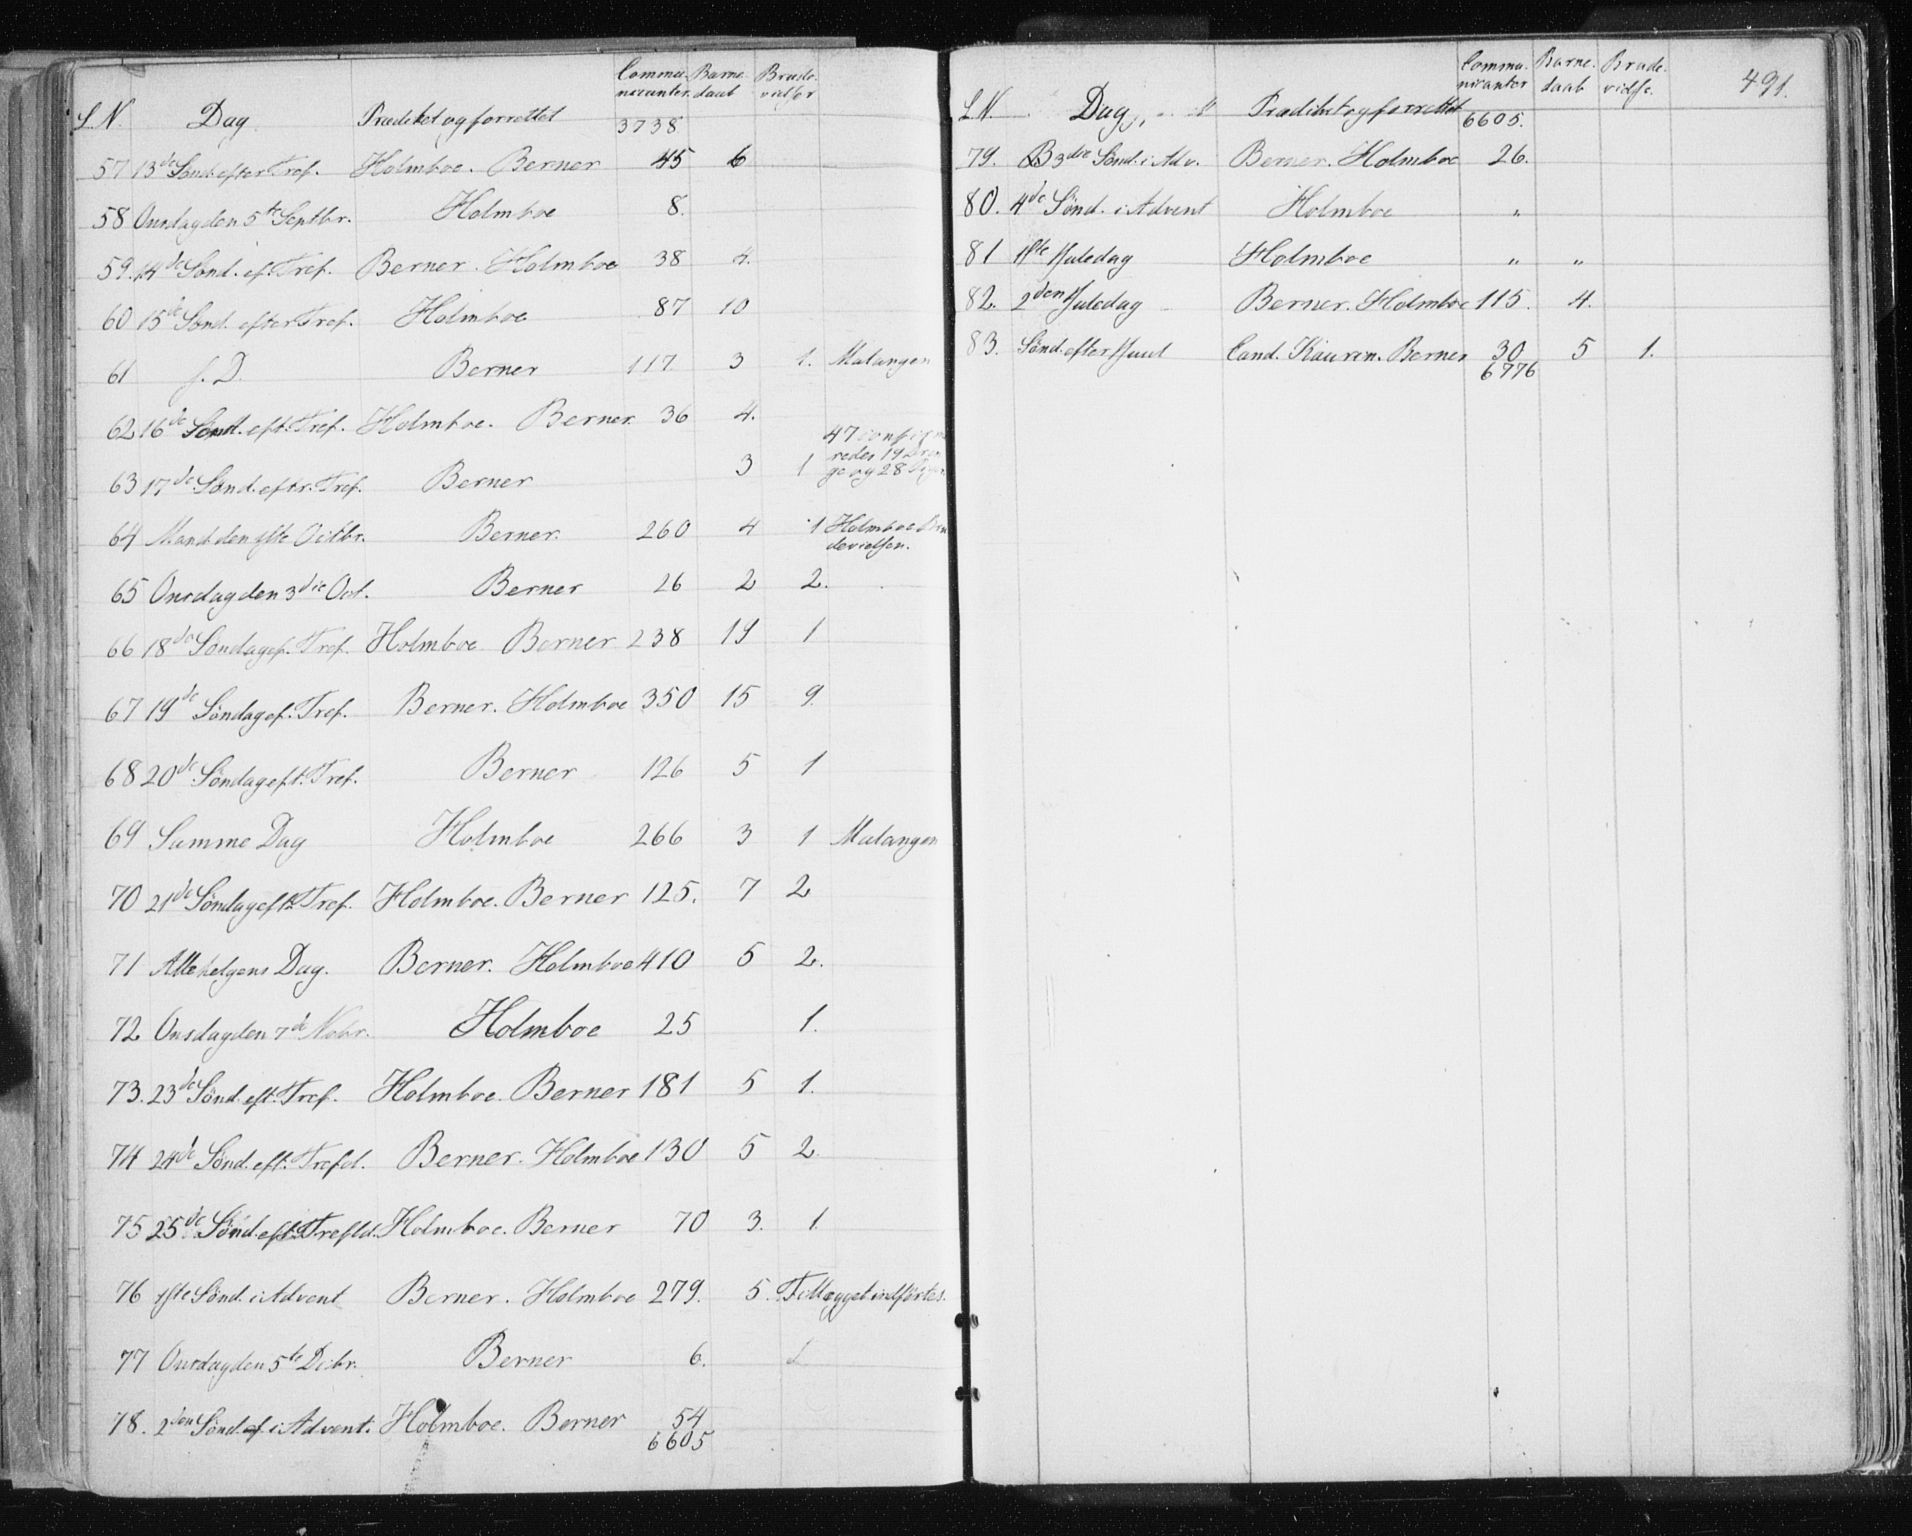 L.N. Dag Prædiket og forrettet Communicanter. Barnedaab Brudevidser
3738
57 13de Sønd. efter Tref. Holmboe. Berner 45 6
58 Onsdag den 5te Septbr. Holmboe 8.
59. 14de Sønd. ef. Tref. Berner. Holmboe 38 4.
60 15de Sønd. efter Tref. Holmboe 87 10
61 s. D. Berner 117. 3 1. Malangen
62 16de Sønd. eft. Tref. Holmboe. Berner. 36 4.
63 17de Sønd. eftr. Tref. Berner 3 1 47 confirmeredes 19 Drenge og 28
64 Mand. den 1ste Octbr. Berner. 260 4 1 Holmboe Brudevielsen.
65 Onsdag den 3die Oct. Berner 26 2 2.
66 18de Søndag ef. Tref. Holmboe Berner 238 19 1
67 19de Søndag ef. Tref. Berner. Holmboe 350 15 9.
68 20de Søndag eft. Tref. Berner 126 5 1
69 Samme Dag Holmboe 266 3 1 Malangen
70 21de Søndag eft. Tref. Holmboe. Berner 125. 7 2
71 Allehelgens Dag. Berner. Holmboe 410 5 2.
72 Onsdag den 7de Nobr. Holmboe 25 1.
73. 23de Sønd. eft. Tref. Holmboe. Berner 181 5 1.
74 24de Sønd. eft. Trefd. Berner. Holmboe 130 5 2.
75 25de Sønd. eft. Trefld. Holmboe. Berner 70 3. 1.
76 1ste Sønd. i Advent Berner. Holmboe 279. 5. Tillægget indførtes.
77 Onsdag den 5te Decbr. Berner 6.
78. 2den Sønd. i Advent. Holmboe. Berner 54
6605
491.
L.N. Dag Prædiket og forrettet Communicanter Barnedaab Brudevidse.
6605.
79. 3die Sønd. i Adv. Berner. Holmboe 26.
80. 4de Sønd. i Advent Holmboe "
81 1ste Juledag Holmboe " "
82. 2den Juledag Berner. Holmboe 115. 4.
83. Sønd. efter Juul Cand. Kauren. Berner 30 5 1.
6776